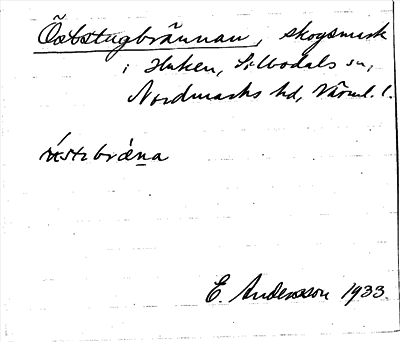 Öststugbrännan, skogsmark
i Haken, Silbodals sn,
Nordmarks hd, Värml. l.
E. Andersson 1933